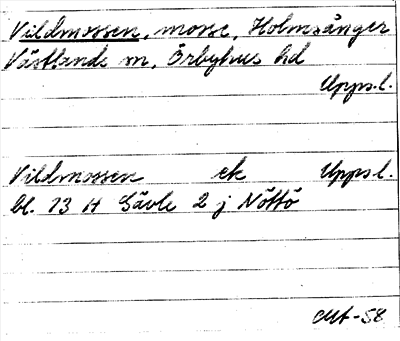 Vildmossen, mosse, Holmsånger
Västlands sn, Örbyhus hd
Upps. l.
Vildmossen ek Upps l.
bl. 13 H Gävle 2 j Nöttö
-58